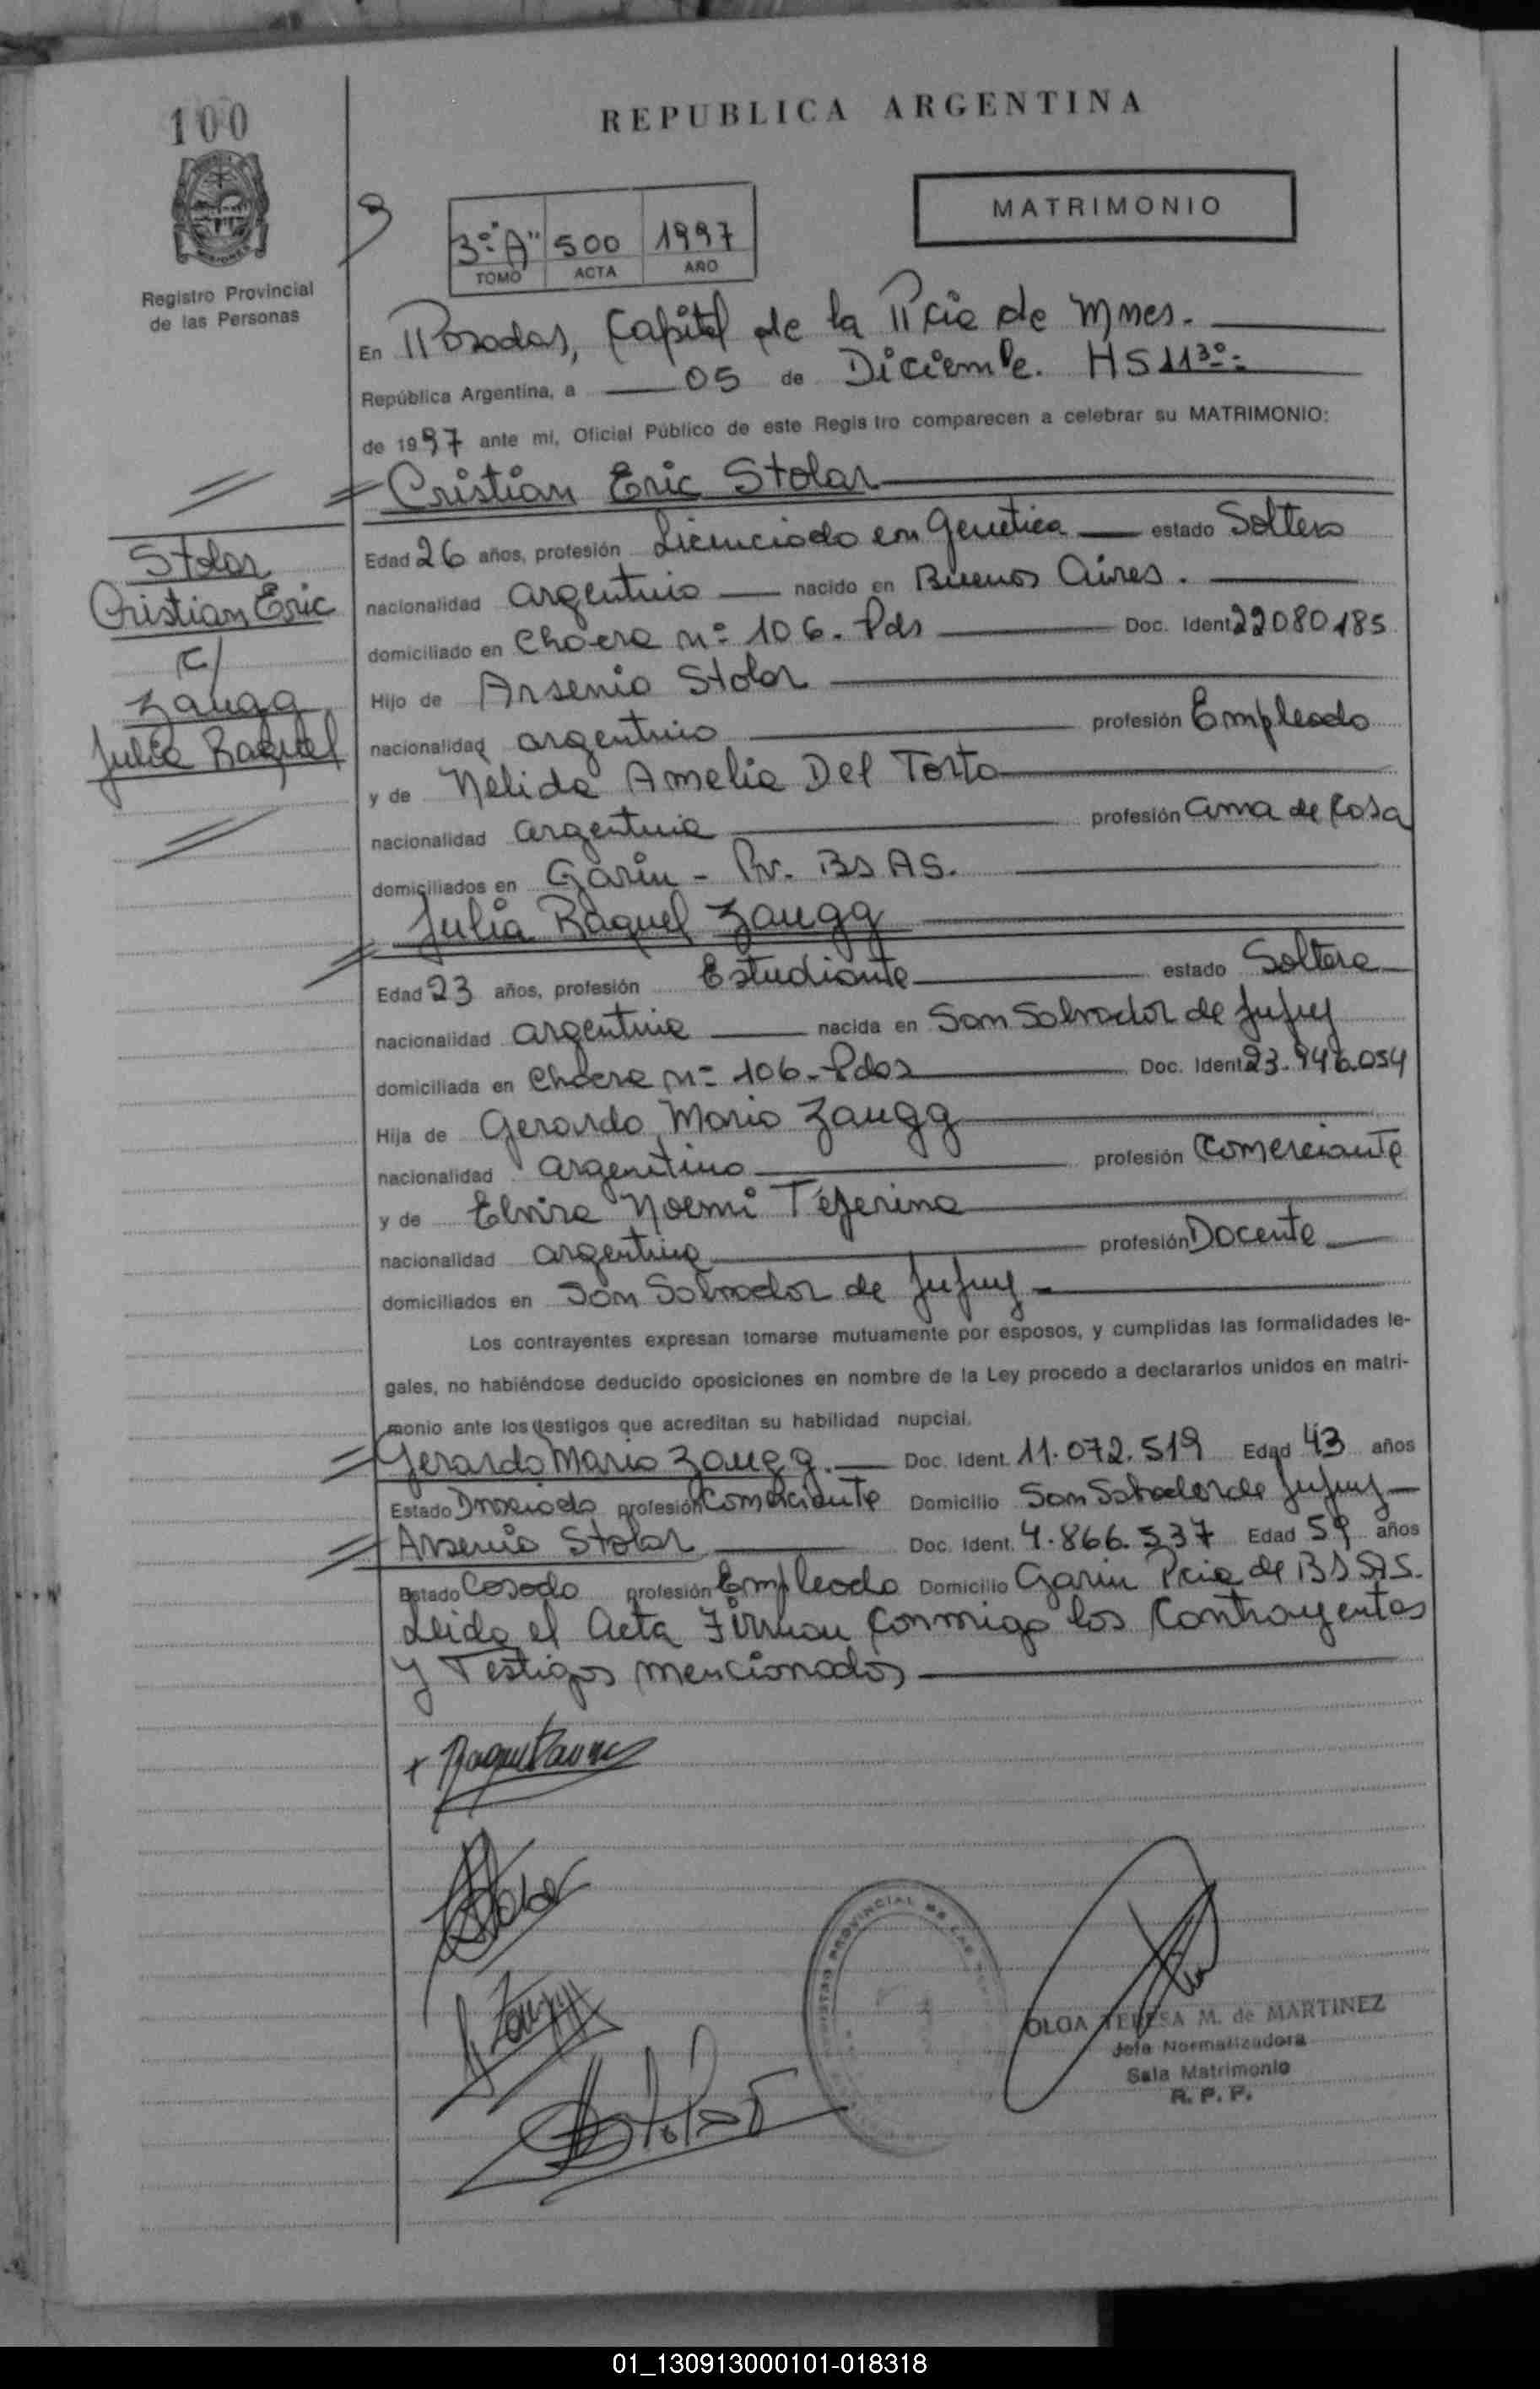 100
REPUBLICA ARGENTINA
MATRIMONIO
3º "A" 500 1997
TOMO ACTA AÑO
Registro Provincial
de las Personas
En Posadas, Capital de la Pcia de Mnes.
República Argentina, a 05 de Diciembre. HS 11 30
de 1997 ante mí, Oficial Público de este Registro comparecen a celebrar su MATRIMONIO:
Cristian Eric Stolar
Stolar
Cristian Eric
c/
Zaugg
Julia Raquel
Edad 26 años, profesión Licenciado en Genetica estado Soltero
nacionalidad argentino nacido en Buenos Aires.
domiciliado en Chacra nº 106. Pdas Doc. Ident 22080185
Hijo de Arsenio Stolar
nacionalidad argentino profesión Empleado
y de Nélida Amelia Del Torto
nacionalidad argentina profesión ama de casa
domiciliados en Garin - Pv. Bs AS.
Julia Raquel Zaugg
Edad 23 años, profesión Estudiante estado Soltera
nacionalidad argentina nacida en San Salvador de Jujuy
domiciliada en Chacra nº 106 - Pdas Doc. Ident 23.946.054
Hija de Gerardo Mario Zaugg
nacionalidad argentino profesión Comerciante
y de Elvira Noemi Tejerina
nacionalidad argentina profesión Docente
domiciliados en San Salvador de Jujuy
Los contrayentes expresan tomarse mutuamente por esposos, y cumplidas las formalidades le-
gales, no habiéndose deducido oposiciones en nombre de la Ley procedo a declararlos unidos en matri-
monio ante los testigos que acreditan su habilidad nupcial.
Gerardo Mario Zaugg. Doc. Ident. 11.072.519 Edad 43 años
Estado Divorciado profesión Comerciante Domicilio San Salvador de Jujuy
Arsenio Stolar Doc. Ident. 4.866.537 Edad 59 años
Estado Casado profesión Empleado Domicilio Garin Pcia de BS AS.
Leida el Acta Firman conmigo los Contrayentes
y Testigos mencionados
Stolar
Zaugg
Stolar
REGISTRO PROVINCIAL DE LAS
OLGA TERESA M. de MARTINEZ
Jefa Normalizadora
Sala Matrimonio
R. P. P.
01_130913000101-018318